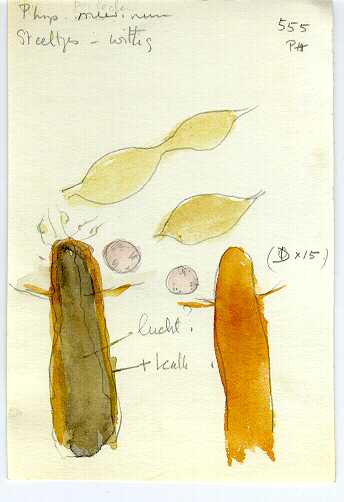 Phys.
Steeltjes - wittig
555
PH
(D x 15)
lucht?
+ kalk